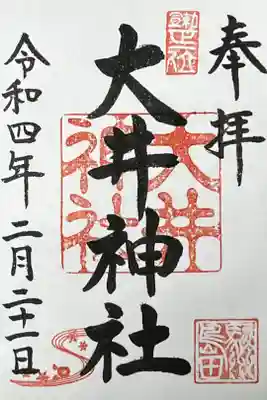 奉拝
大井神社
大井
神社
令和四年二月二十一日
島田